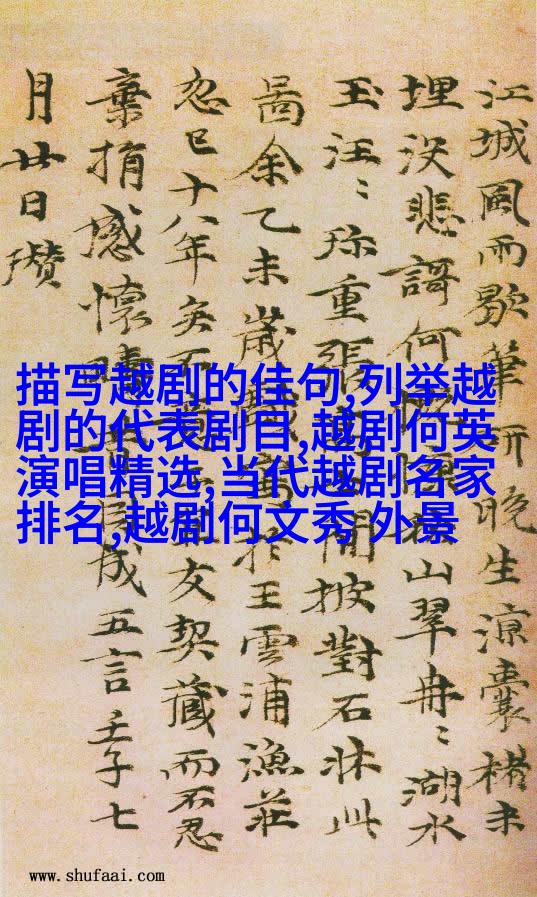 江城風雨歇筆研晚生涼囊楮未
埋没悲謌何山翠冉〻湖水
玉汪〻珎重張閒披對石牀此
啚余乙未歲於王雲浦漁莊
忽已十八年矣不友契藏而不忍
棄捐感懷成五言壬子七
月廿日瓚
描写越剧的佳句,列举越
剧的代表剧目,越剧何英
演唱精选,当代越剧名家
排名,越剧何文秀 外景
www.shufaai.com